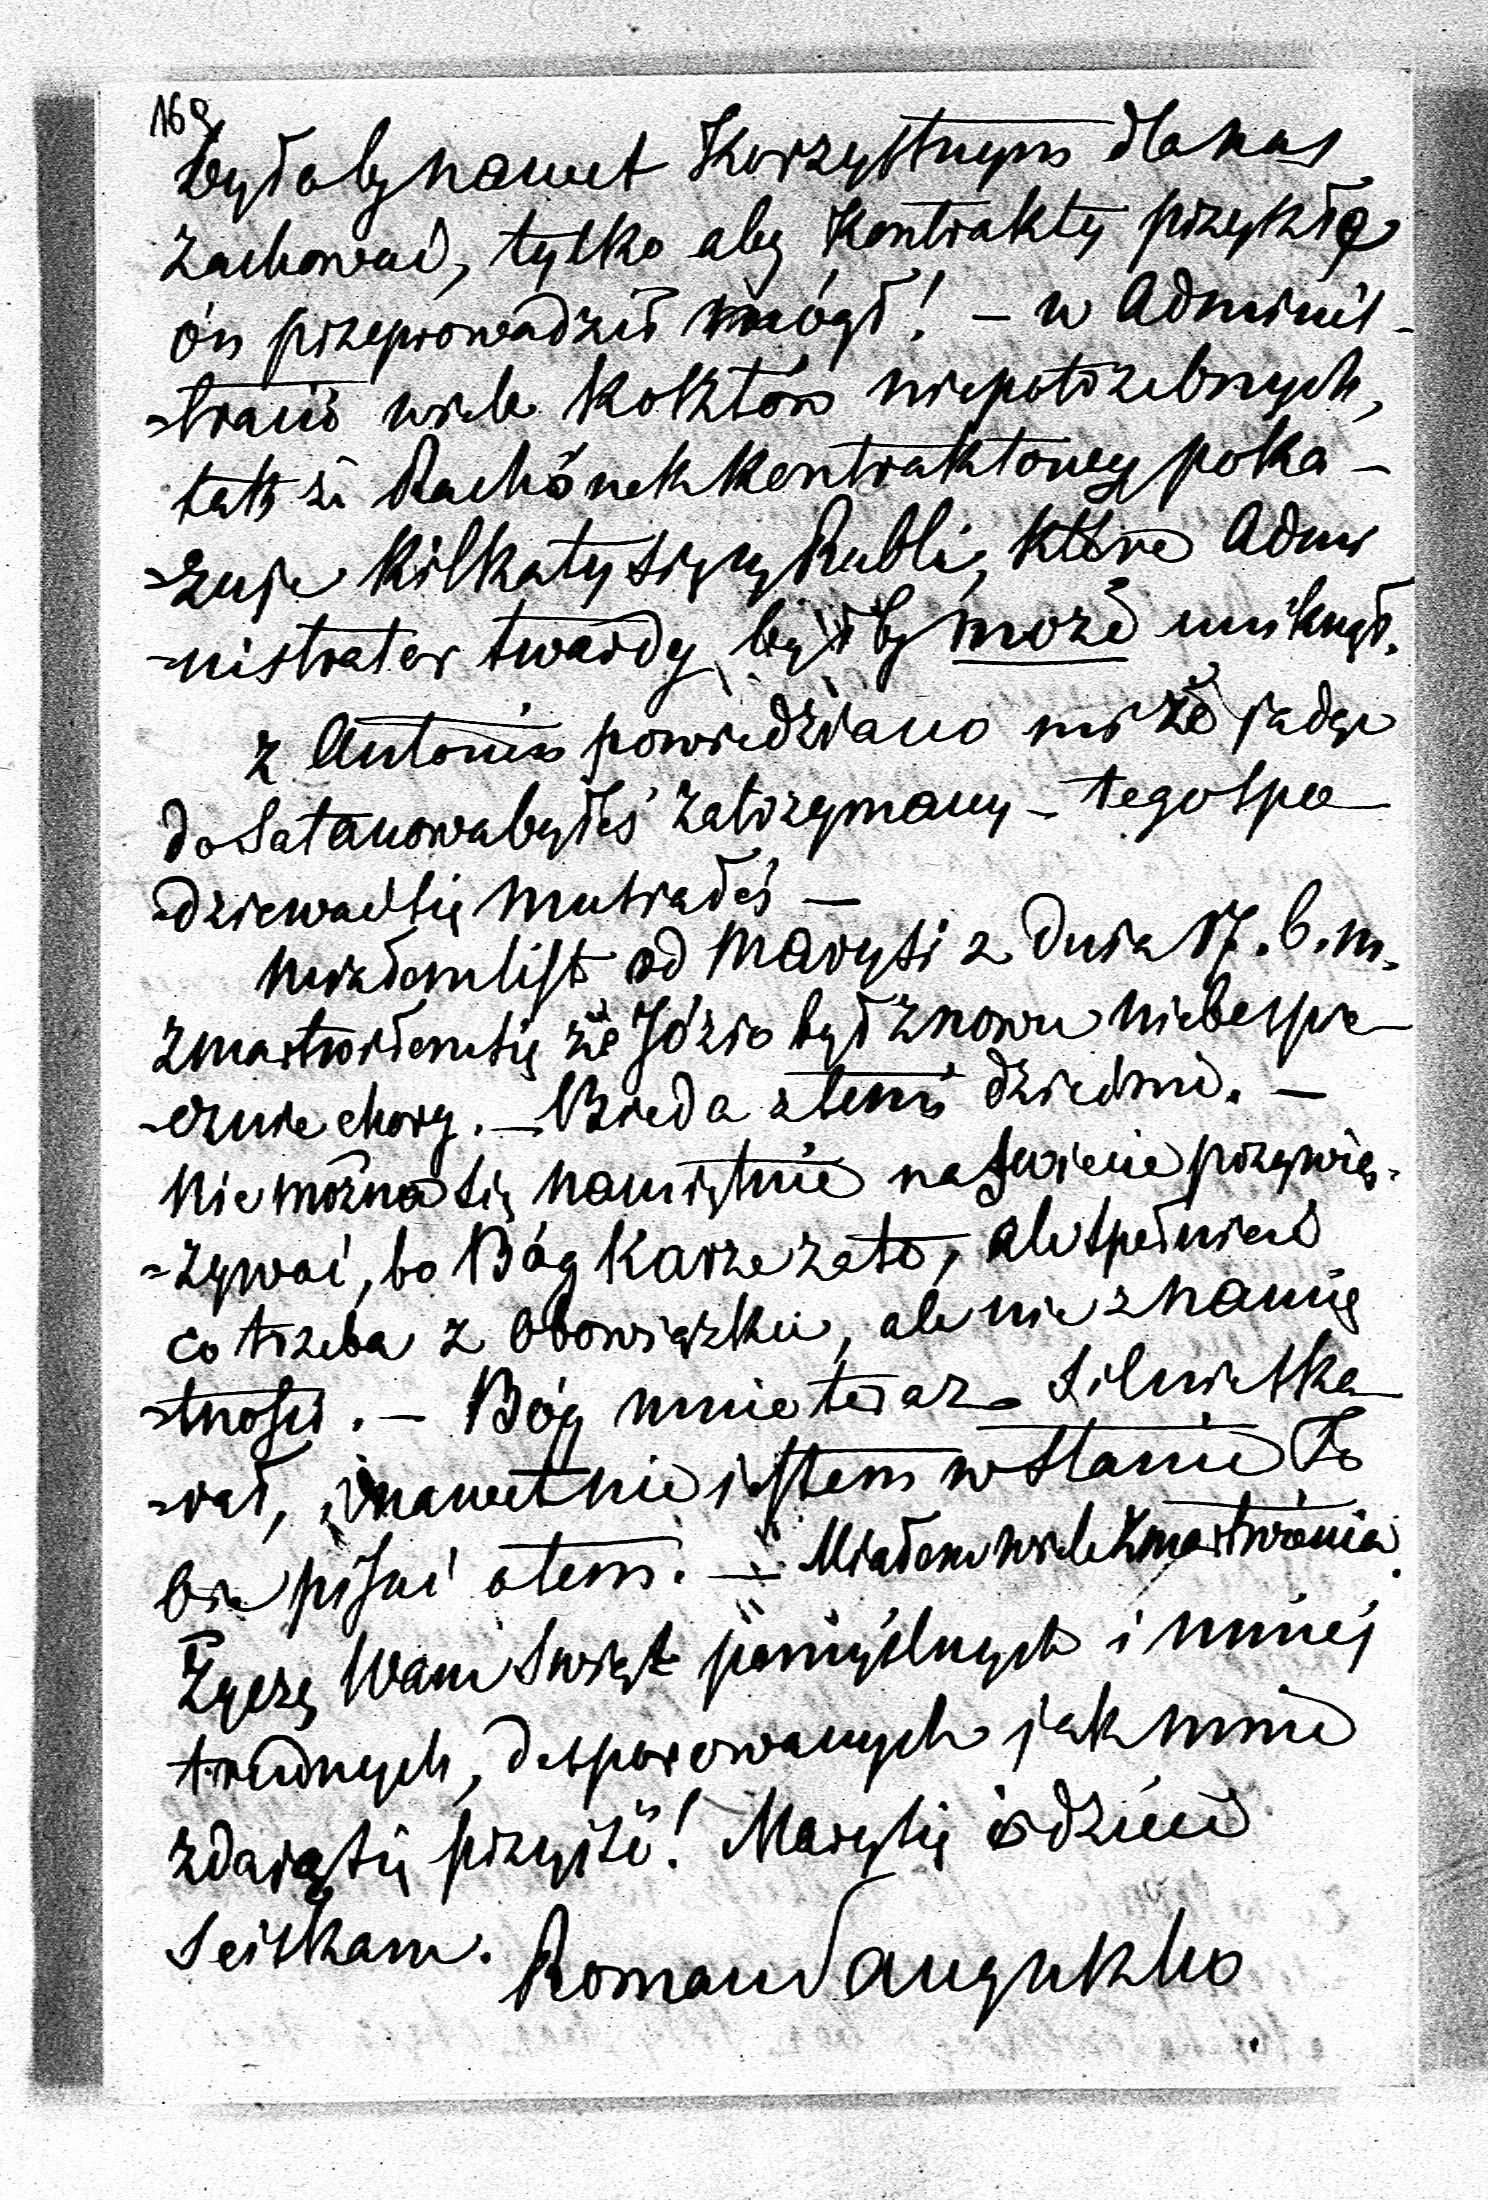 169
byłoby nawet korzystnym dla nas
zachować, tylko aby kontrakty przyszłe
ón przeprowadzić mógł! – w Adminis-
-tracii wiele kosztów niepotrzebnych,
tak że Rachónek kontraktowy poka-
-zuje kilka tysięcy Rubli, które Admi
-nistrator twardy byłby może uniknął.
z Antonin powiedziano mi że jadąc
do Satanowa byłeś zatrzymany – tego spo-
-dziewać się musiałeś –
Miałem list od Marysi z dnia 17. b. m.
zmartwiłem się że Józio był znowu niebespie-
-cznie chory. – Bieda z temi dziećmi. –
Nie można się namiętnie na świecie przywią-
-zywać, bo Bóg karze za to, ale spełniać
co trzeba z obowiązku, ale nie z namię
-tności. – Bóg mnie teraz silnie ska-
-rał, i nawet nie jestem w stanie To
bie pisać o tem. – Miałem wiele zmartwienia.
Życzę Wam Swiąt pomyślnych i mniej
trudnych, desperowanych jak mnie
zdają się przyjść! Marysię i dzieci
Sciskam.
Roman Sanguszko